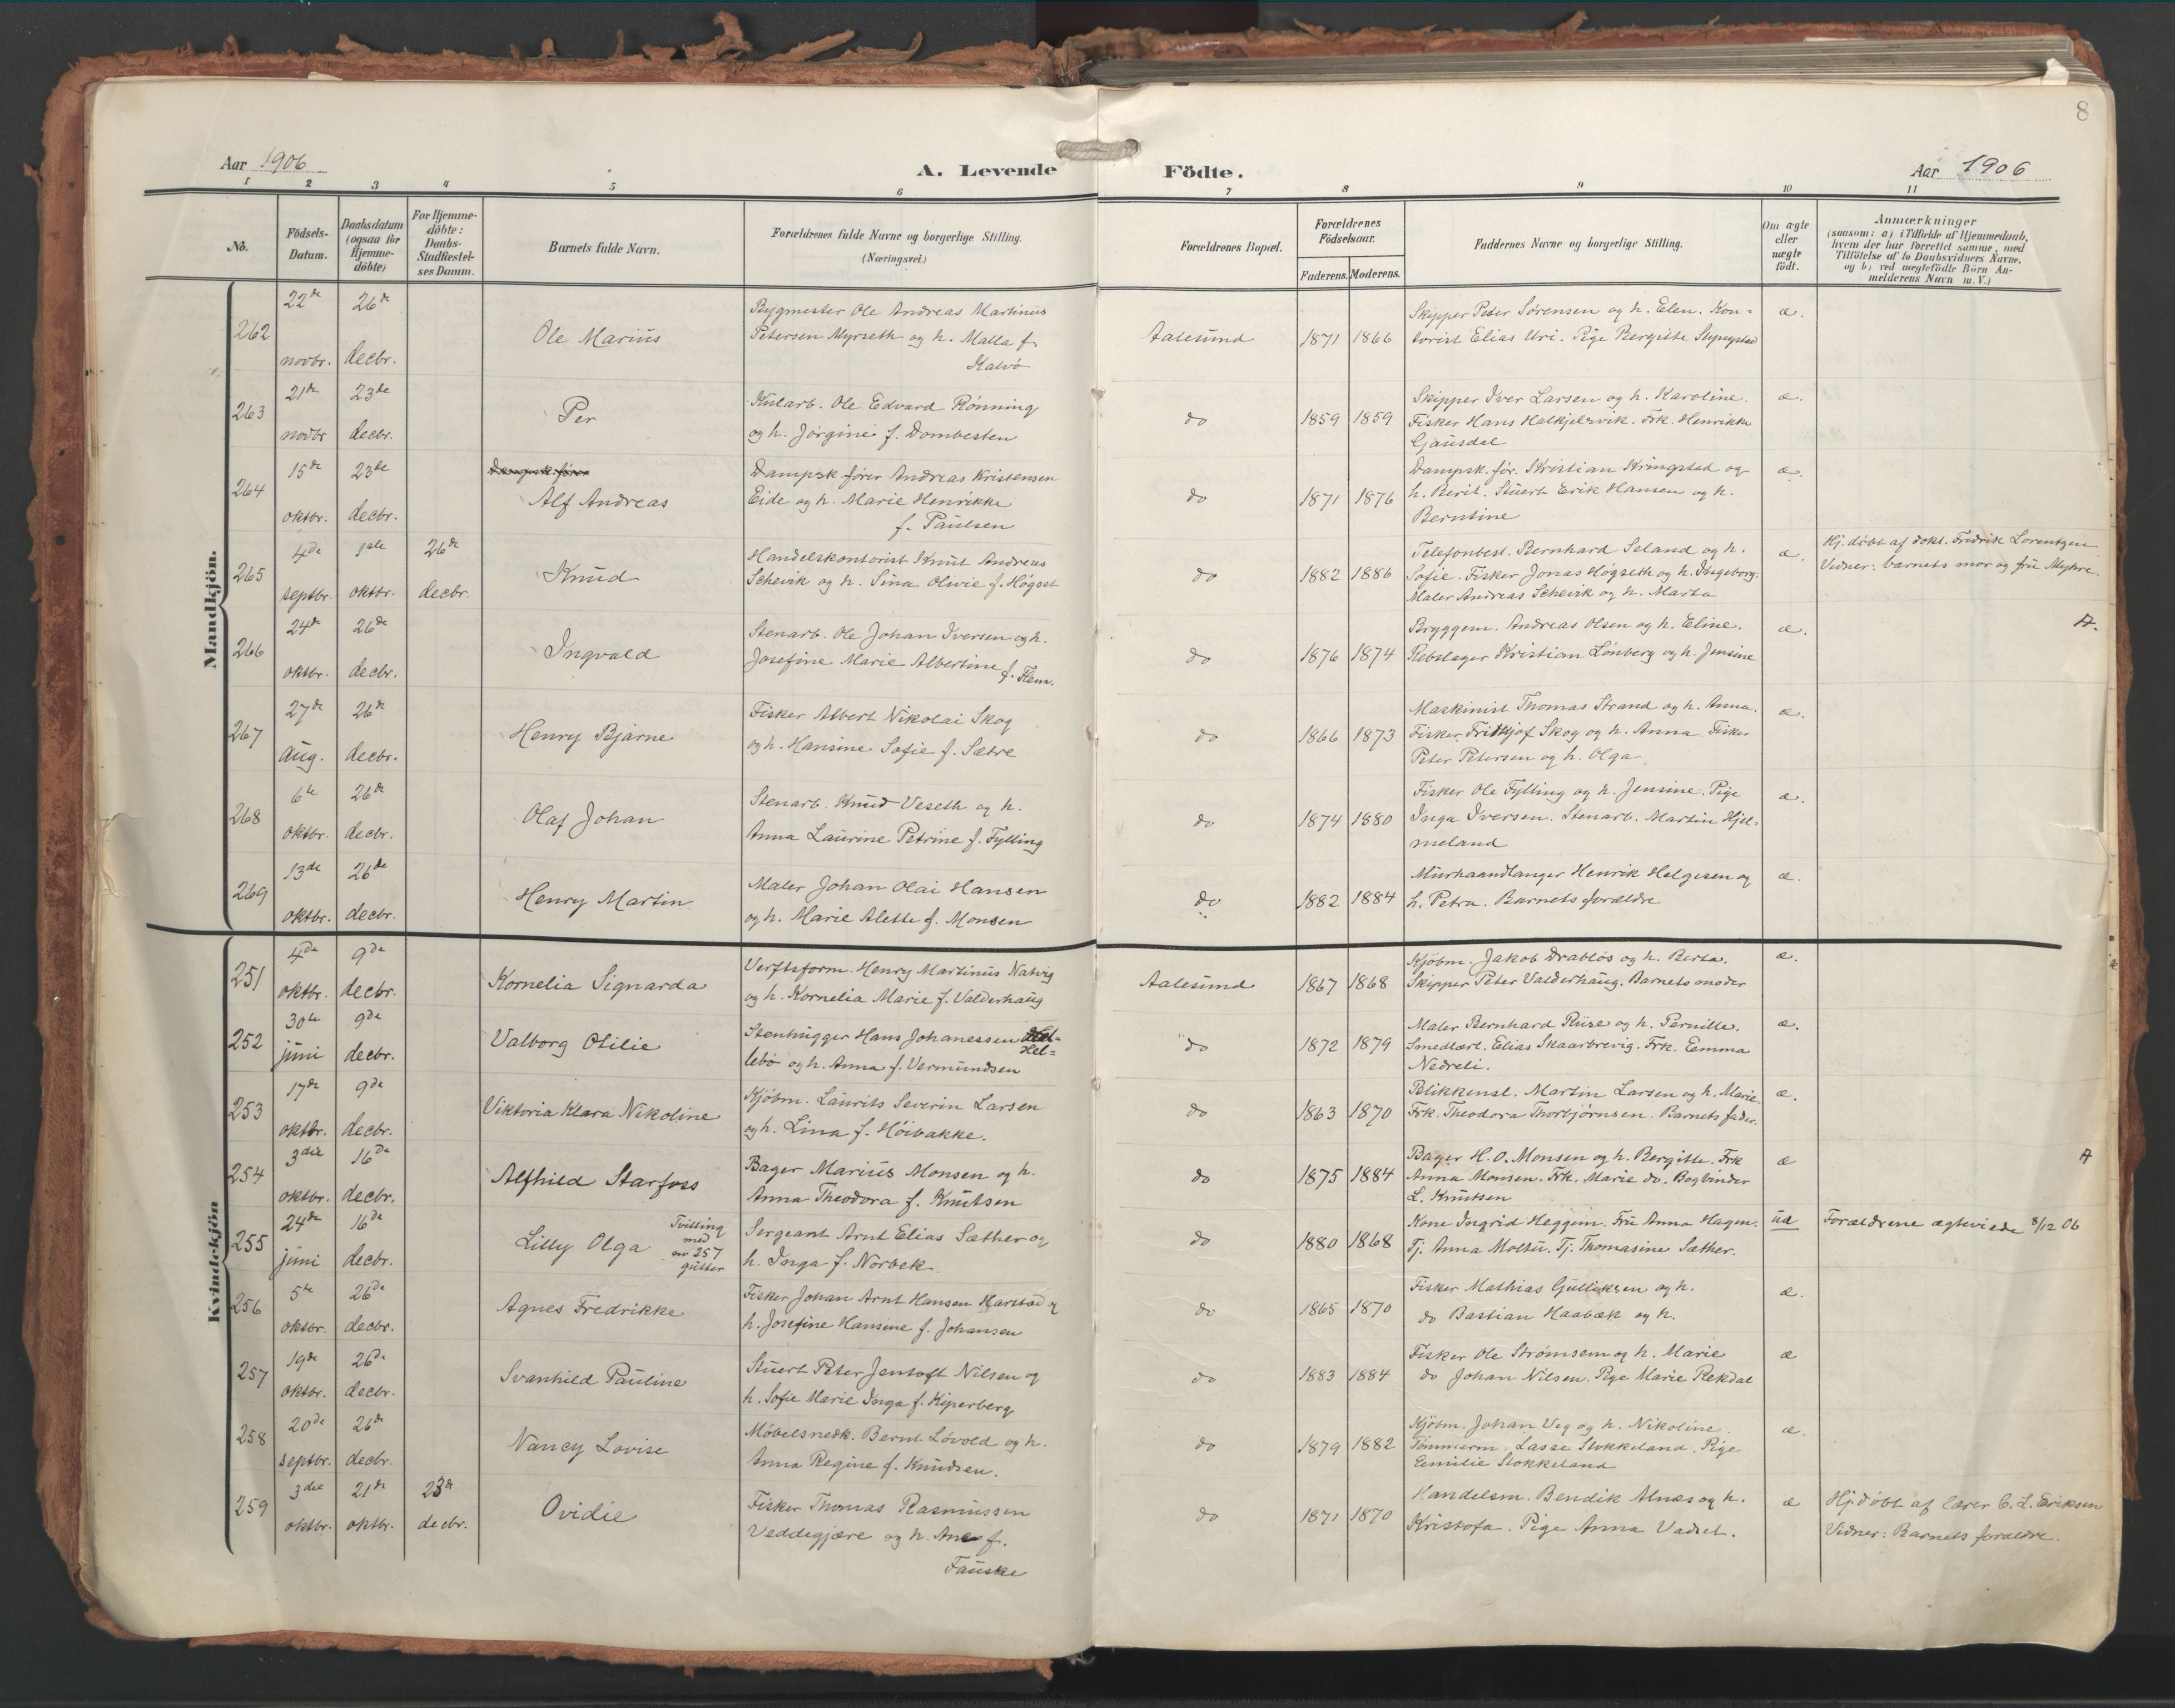 8
Aar 1906
A. Levende Födte.
Aar 1906
1 2 3 4 5 6 7 8 9 10 11
No.
Födsels-
Datum.
Daabsdatum
(ogsaa for
Hjemme-
döbte)
For Hjemme-
döbte:
Daabs-
Stadfæstel-
ses Datum.
Barnets fulde Navn.
Forældrenes fulde Navne og borgerlige Stilling.
(Næringsvei.)
Forældrenes Bopæl.
Forældrenes
Födselsaar.
Faderens. Moderens.
Faddernes Navne og borgerlige Stilling.
Om ægte
eller
uægte
födt.
Anmærkninger
(saasom: a) i Tilfælde af Hjemmedaab,
hvem der har forrettet samme, med
Tilföielse af to Daabsvidners Navne,
og b) ved uægtefödte Börn An-
melderens Navn m. V.)
Mandkjön.
262
22de novbr.
26de decbr.
Ole Marius
Bygmester Ole Andreas Martinus
Petersen Myrseth og h. Malla f.
Kalvø
Aalesund
1871 1866
Skipper Peder Sørensen og h. Elen. Kon-
torist Elias Uri. Pige Bergitte
æ.
263
21de novbr
23de decbr.
Per
Kularb. Ole Edvard Rønning
og h. Jørgine f. Dombesten
do
1859 1859
Skipper Iver Larsen og h. Karoline.
Fisker Hans Halkjelsvik. Frk. Henrikke
Gjausdal
æ.
264
15de oktbr.
23de decbr.
Dampsk. fører
Alf Andreas
Dampsk. fører Andreas Kristensen
Eide og h. Marie Henrikke
f. Paulsen
do
1871 1876
Dampsk. før. Kristian Kringstad og
h. Berit. Stuert Erik Hansen og h.
Berntine
æ.
265
4de septbr.
1ste oktbr.
26de decbr.
Knud
Handelskontorist Knut Andreas
Schevik og h. Sina Olivie f. Høgset
do
1882 1886
Telefonbest. Bernhard Seland og h.
Sofie. Fisker Jonas Høgseth og h. Ingeborg.
Maler Andreas Schevik og h. Marta
æ.
Hj. døbt af dokt. Fredrik Lorentzen
Vidner: barnets mor og fru Myhre.
266
24de oktbr.
26de decbr.
Ingvald
Stenarb. Ole Johan Iversen og h.
Josefine Marie Albertine f. Flem.
do
1876 1874
Bryggem. Andreas Olsen og h. Eline.
Rebslager Kristian Lønberg og h. Jensine
æ.
A.
267
27de aug.
26de decbr.
Henry Bjarne
Fisker Albert Nikolai Skog
og h. Hansine Sofie f. Sætre
do
1866 1873
Maskinist Thomas Strand og h. Anna.
Fisker Fridtjof Skog og h. Anna. Fisker
Peter Petersen og h. Olga
æ.
268
6te oktbr.
26de decbr.
Olaf Johan
Stenarb. Knud Veseth og h.
Anna Laurine Petrine f. Fylling
do
1874 1880
Fisker Ole Fylling og h. Jensine. Pige
Inga Iversen. Stenarb. Martin Hjel-
meland
æ.
269
13de oktbr.
26de decbr.
Henry Martin
Maler Johan Olai Hansen
og h. Marie Alette f. Monsen
do
1882 1884
Murhaandlanger Henrik Helgesen og
h. Petra. Barnets forældre
æ.
Kvindekjön
251
4de oktbr.
9de decbr.
Kornelia Signarda
Verftsform. Henry Martinus Natvig
og h. Kornelia Marie f. Valderhaug
Aalesund
1867 1868
Kjøbm. Jakob Drabløs og h. Berta.
Skipper Peter Valderhaug. Barnets moder
æ.
252
30te juni
9de decbr.
Valborg Otilie
Stenhugger Hans Johanessen Hel-
lebø og h. Anna f. Vermundsen
do
1872 1879
Maler Bernhard Riise og h. Pernille.
Smedlærl. Elias Skaarbrevig. Frk. Emma
Nedreli.
æ.
253
17de oktbr.
9de decbr.
Viktoria Klara Nikoline
Kjøbm. Laurits Severin Larsen
og h. Lina f. Høibakke.
do
1863 1870
Blikkensl. Martin Larsen og h. Marie.
Frk. Theodora Thorbjørnsen. Barnets fader.
æ.
254
3die oktbr.
16de decbr.
Alfhild Starfoss
Bager Marius Monsen og h.
Anna Theodora f. Knutsen
do
1875 1884
Bager H. O. Monsen og h. Bergitte. Frk
Anna Monsen. Frk. Marie do. Bogbinder
L. Knutsen
æ
A
255
24de juni
16de decbr.
Lilly Olga
Tvilling
med
no 257
gutter
Sergeant Arnt Elias Sæther og
h. Inga f. Norbek.
do
1880 1868
Kone Ingrid Heggem. Fru Anna Hagen.
Tj. Anna Moltu. Tj. Thomasine Sæther.
ud
Forældrene ægteviede 8/12 06
256
5te oktbr.
26de decbr.
Agnes Fredrikke
Fisker Johan Arnt Hansen Harstad og
h. Josefine Hansine f. Johansen
do
1865 1870
Fisker Mathias Gulliksen og h.
do Bastian Haabæk og h.
æ.
257
19de oktbr.
26de decbr.
Svanhild Pauline
Stuert Peter Jentoft Nilsen og
h. Sofie Marie Inga f. Kiperberg
do
1883 1884
Fisker Ole Strømsem og h. Marie
do Johan Nilsen. Pige Marie Rekdal
æ
258
20de septbr.
26de decbr.
Nancy Lovise
Møbelsnedk. Bernt Løvold og h.
Anna Regine f. Knudsen.
do
1879 1882
Kjøbm. Johan Veg og h. Nikoline.
Tømmerm. Lasse Stokkeland. Pige
Emilie Stokkeland
æ.
259
3die oktbr.
21de oktbr.
23de decbr.
Ovidie
Fisker Thomas Rasmussen
Veddegjære og h. Ane f.
Fauske
do
1871 1870
Handelsm. Bendik Alnæs og h.
Kristofa. Pige Anna Vadset.
æ
Hj. døbt af lærer C. L. Eriksen
Vidner: Barnets forældre.